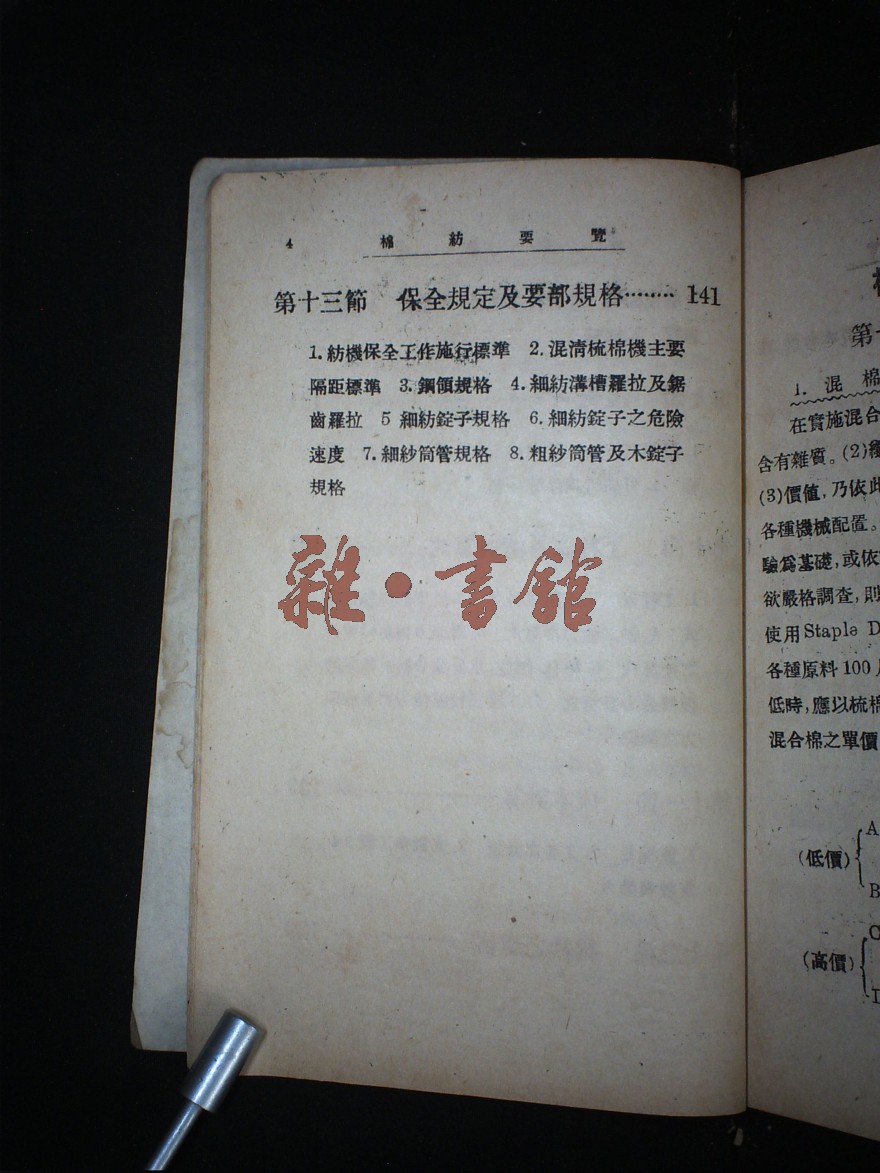 4 棉紡要覽
第十三節 保全規定及要部規格········ 141
1. 紡機保全工作施行標準 2. 混淸梳棉機主要
隔距標準 3. 鋼領規格 4. 細紡溝槽羅拉及鋸
齒羅拉 5 細紡錠子規格 6. 細紡錠子之危險
速度 7. 細紗筒管規格 8. 粗紗筒管及木錠子
規格
雜·書館
第
1. 混棉
在實施混合
含有雜質。(2)
(3)價値,乃依此
各種機械配置。
驗爲基礎,或依
欲嚴格調查,則
使用Staple D
各種原料100
低時,應以梳棉
混合棉之單價
A
(低價)
B
C
(高價)